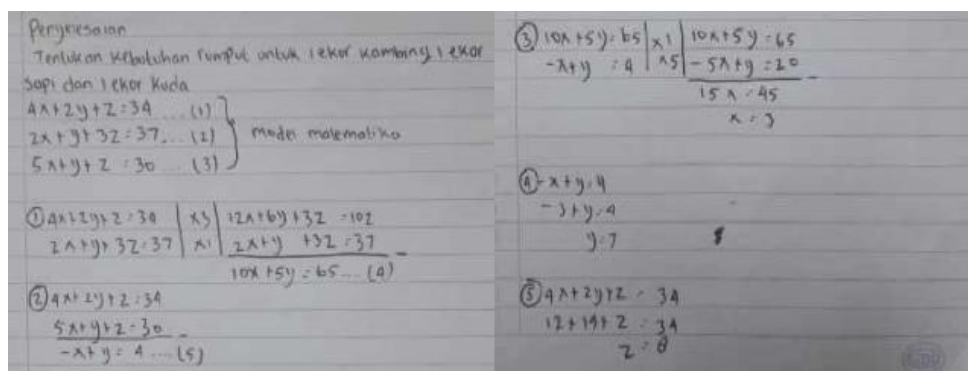 Penyelesaian
Tentukan kebutuhan rumput untuk 1 ekor kambing, 1 ekor
sapi dan 1 ekor kuda
4x+2y+z=34 .... (1)
2x+y+3z=37 .... (2) model matematika
5x+y+z=30 .... (3)
① 4x+2y+z=34 | x3 | 12x+6y+3z=102
2x+y+3z=37 | x1 | 2x+y+3z=37 -
10x+5y=65 .... (4)
② 4x+2y+z=34
5x+y+z=30 -
-x+y=4 .... (5)
③ 10x+5y=65 | x1 | 10x+5y=65
-x+y=4 | x5 | -5x+y=20 -
15x=45
x=3
④ -x+y=4
-3+y=4
y=7
⑤ 4x+2y+z=34
12+14+z=34
z=8